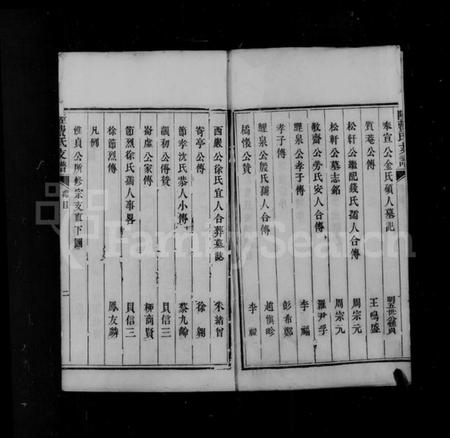 奉宣公金氏碩人墓記
質菴公傳 王鳴盛
松軒公繼配錢氏孺人合傳 周宗元
松軒公墓志銘 周宗元
敎齋公勞氏安人合傳 羅尹孚
鯉泉公孝子傳 李福
孝子傳 彭希鄭
鯉泉公殷氏孺人合傳 趙愼畛
橘懷公贊 李福
西巖公徐氏宜人合葬墓誌 朱緒曾
寄亭公傳 徐翱
節孝沈氏恭人小傳 蔡九齡
飊初公傳贊 貝信三
崙虛公家傳 柳商賢
節烈徐氏孺人事畧 貝信三
徐節烈傳 鳳友麟
凡例
惟貞公所修宗支直下圖
氏支譜
二
FamilySearch